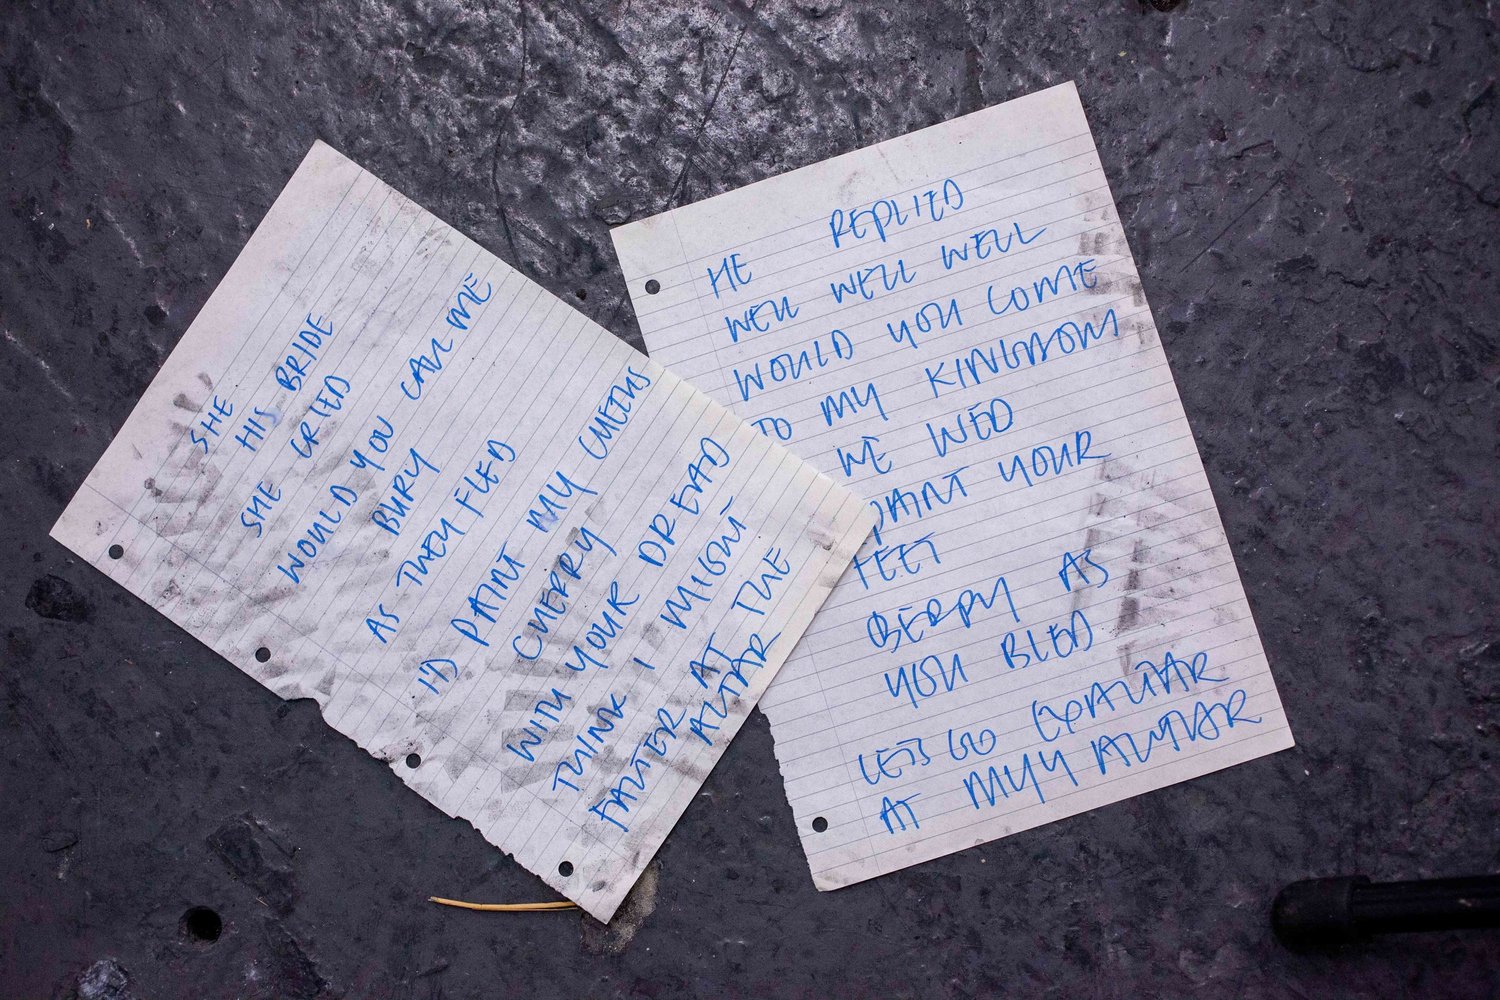 SHE
HIS BRIDE
SHE CRIED
WOULD YOU CALL ME
BURY
AS THEY FLED
I'D PAINT MY CHEEKS
CHERRY
WITH YOUR DREAD
THINK I MIGHT
FALTER AT THE
ALTAR
HE REPLIED
WELL WELL WELL
WOULD YOU COME
TO MY KINGDOM
WE WED
PAINT YOUR
FEET
BERRY AS
YOU BLED
LETS GO
AT ALTAR